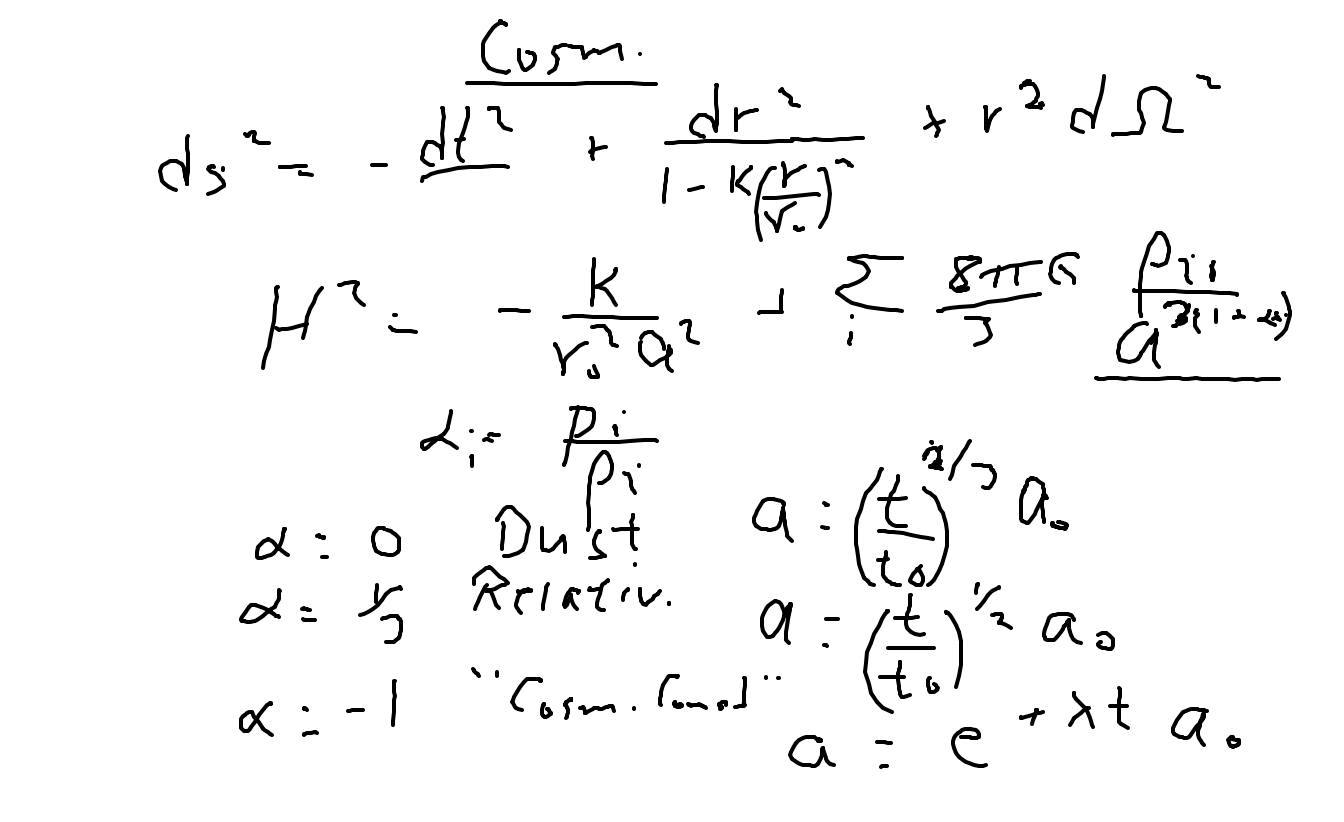 Cosm.
ds² = - dt² + dr² / (1 - K(r/r₀)²) + r² dΩ²
H² = - K / (r₀² a²) + Σᵢ 8πG/3 ρᵢ₁ / a^{3(1+αᵢ)}
αᵢ = pᵢ / ρᵢ
α = 0 Dust a = (t/t₀)^{2/3} a₀
α = 1/3 Relativ. a = (t/t₀)^{1/2} a₀
α = -1 "Cosm. Const" a = e^{+λt} a₀